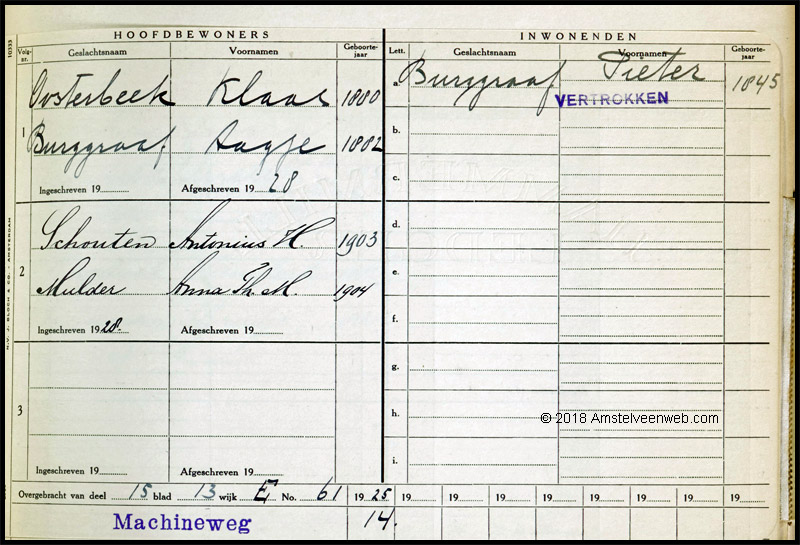 10333
HOOFDBEWONERS
INWONENDEN
Volg-nr. Geslachtsnaam Voornamen Geboorte-jaar Lett. Geslachtsnaam Voornamen Geboorte-jaar
1
Oosterbeek Klaas 1880
a. Burggraaf Pieter 1845
VERTROKKEN
Burggraaf Aagje 1882
b.
c.
Ingeschreven 19 Afgeschreven 19 28
2
Schouten Antonius H. 1903
d.
Mulder Anna Th. M. 1904
e.
f.
Ingeschreven 19 28. Afgeschreven 19
3
g.
h.
© 2018 Amstelveenweb.com
i.
Ingeschreven 19 Afgeschreven 19
N.V. J. BLOCH & CO. - AMSTERDAM
Overgebracht van deel 15 blad 13 wijk E No. 61 19 25 19 19 19 19 19 19 19 19
Machineweg 14.